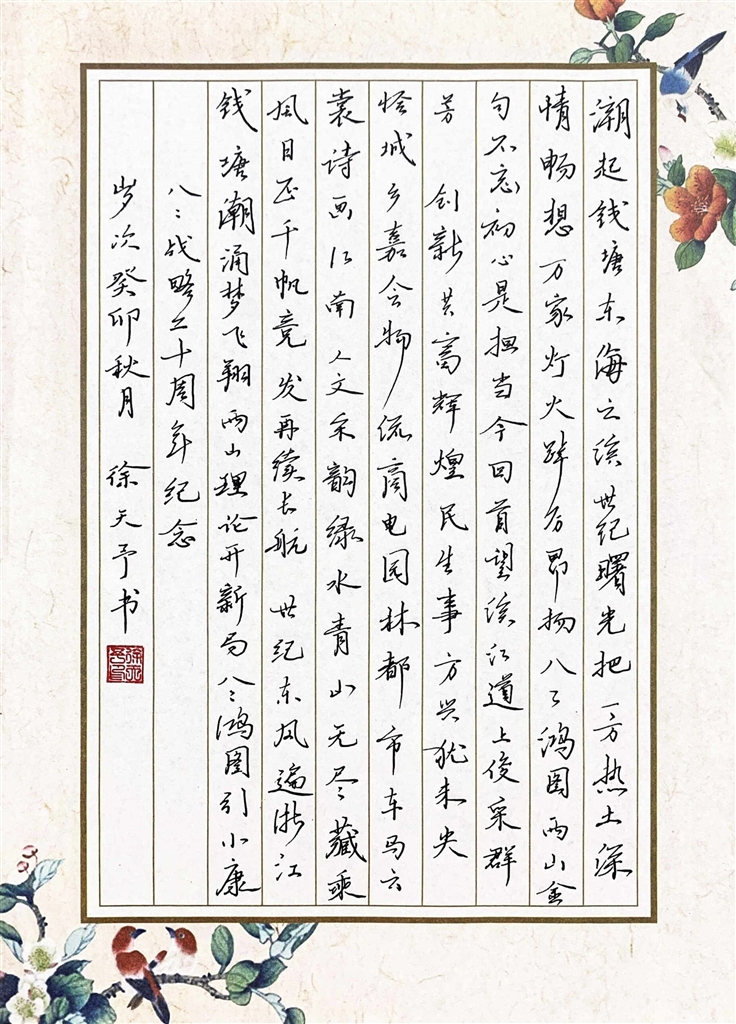 潮起钱塘东海之滨世纪曙光把一方热土深
情畅想万家灯火踔厉昂扬八〻鸿图两山金
句不忘初心是担当今回首望滨江道上俊采群
芳 创新共富辉煌民生事方兴犹未央
怪城乡嘉会物流商电园林都市车马云
裳诗画江南人文采韵绿水青山无尽藏乘
风日正千帆竞发再续长航 世纪东风遍浙江
钱塘潮涌梦飞翔两山理论开新局八〻鸿图引小康
八〻战略二十周年纪念
岁次癸卯秋月 徐天予书